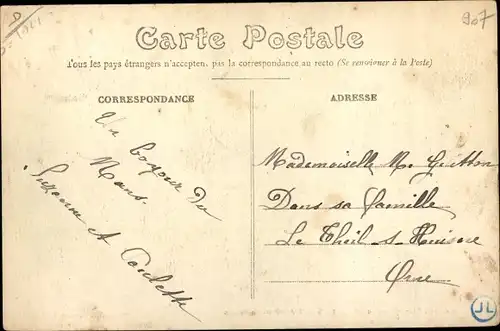 907
Carte Postale
Tous les pays étrangers n'acceptent pas la correspondance au recto (Se renseigner à la Poste)
CORRESPONDANCE
ADRESSE
Un bonjour du
Mans.
Suzanne et Paulette
Mademoiselle M. Guitton
Dans sa famille
Le Theil-s-Huisne
Orne
JL